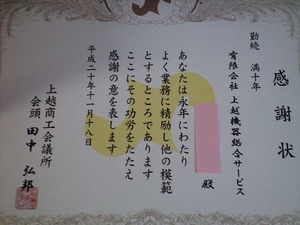 感謝状
勤続 満十年
有限会社 上越機器総合サービス
殿
あなたは永年にわたり
よく業務に精励し他の模範
とするところであります
ここにその功労をたたえ
感謝の意を表します
平成二十年十一月十八日
上越商工会議所
会頭 田中弘邦